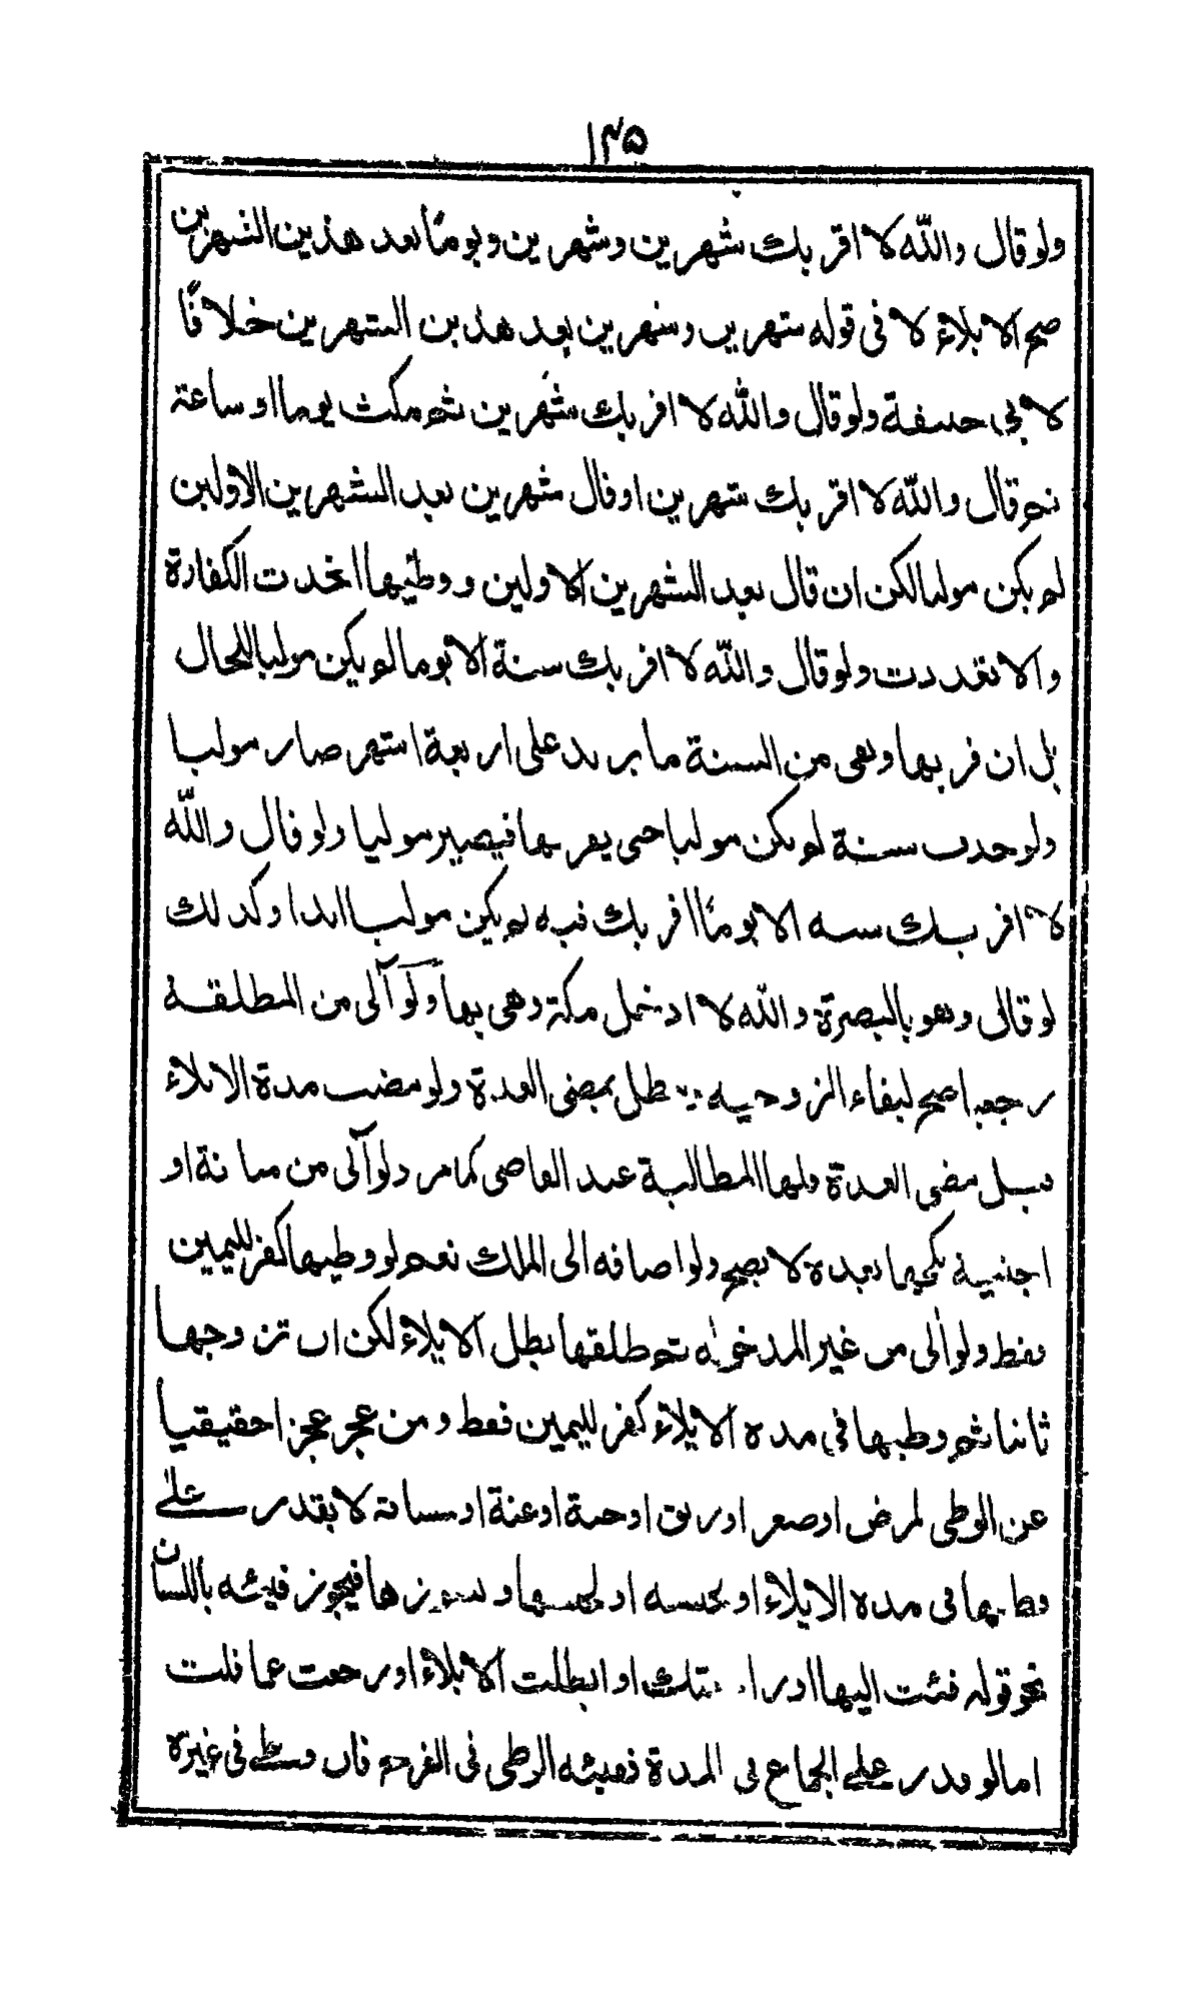 ١٣٥
ولو قال والله لا اقربك شهرين وشهرين ويوما بعد هذين الشهرين
صح الايلاء لا فى قوله شهرين وشهرين بعد هذين الشهرين خلافا
لابى حنيفة ولو قال والله لا اقربك شهرين ثم مكث يوما او ساعة
ثم قال والله لا اقربك شهرين او قال شهرين بعد الشهرين الاولين
لم يكن موليا لكن ان قال بعد الشهرين الاولين ووطئها اتحدت الكفارة
والا تعددت ولو قال والله لا اقربك سنة الا يوما لم يكن موليا للحال
بل ان قربها وبقى من السنة ما يزيد على اربعة اشهر صار موليا
ولو حذف سنة لم يكن موليا حتى يقربها فيصير موليا ولو قال والله
لا اقربك سنة الا يوما اقربك فيه لم يكن موليا ابدا وكذلك
لو قال وهو بالبصرة والله لا ادخل مكة وهى بها ولو آلى من المطلقة
رجعيا صح لبقاء الزوجية ويبطل بمضى العدة ولو مضت مدة الايلاء
قبل مضى العدة فلها المطالبة عند القاضى كما مر ولو آلى من مبانة او
اجنبية نكحها بعده لا يصح ولو اضافه الى الملك نعم لو وطيها كفر لليمين
فقط ولو الى من غير المدخولة ثم طلقها بطل الايلاء لكن ان تزوجها
ثانيا ثم وطيها فى مدة الايلاء كفر لليمين فقط ومن عجز عجزا حقيقيا
عن الوطى لمرض او صغر او رتق او جبة او عنة او مسافة لا يقدر على
وطيها فى مدة الايلاء او لحبسه او لحبسها ونشوزها فيجوز فيئه باللسان
نحو قوله فئت اليها او راجعتك او ابطلت الايلاء او رجعت عما قلت
اما لو قدر على الجماع فى المدة ففيئه الوطى فى الفرج فان وطى فى غيره